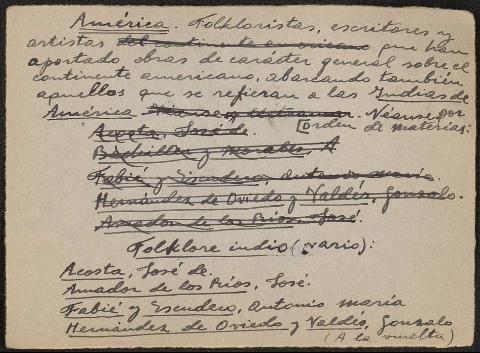 América. Folkloristas, escritores y
artistas del continente americano que han
aportado obras de carácter general sobre el
continente americano, abarcando también
aquellos que se refieran a las Indias de
América. Véanse por
[orden de materias:
Acosta, José de.
Bachiller y Morales, A
Fabié y Escudero, Antonio María.
Hernández de Oviedo y Valdés, Gonzalo.
Amador de los Ríos, José.
Folklore indio (vario):
Acosta, José de.
Amador de los Ríos, José.
Fabié y Escudero, Antonio María
Hernández de Oviedo y Valdés, Gonzalo
(A la vuelta)